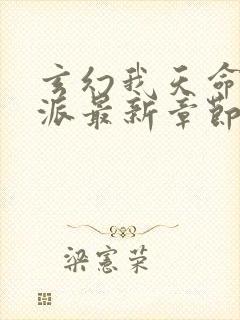 玄幻我天命
派最新章節
梁憲荣